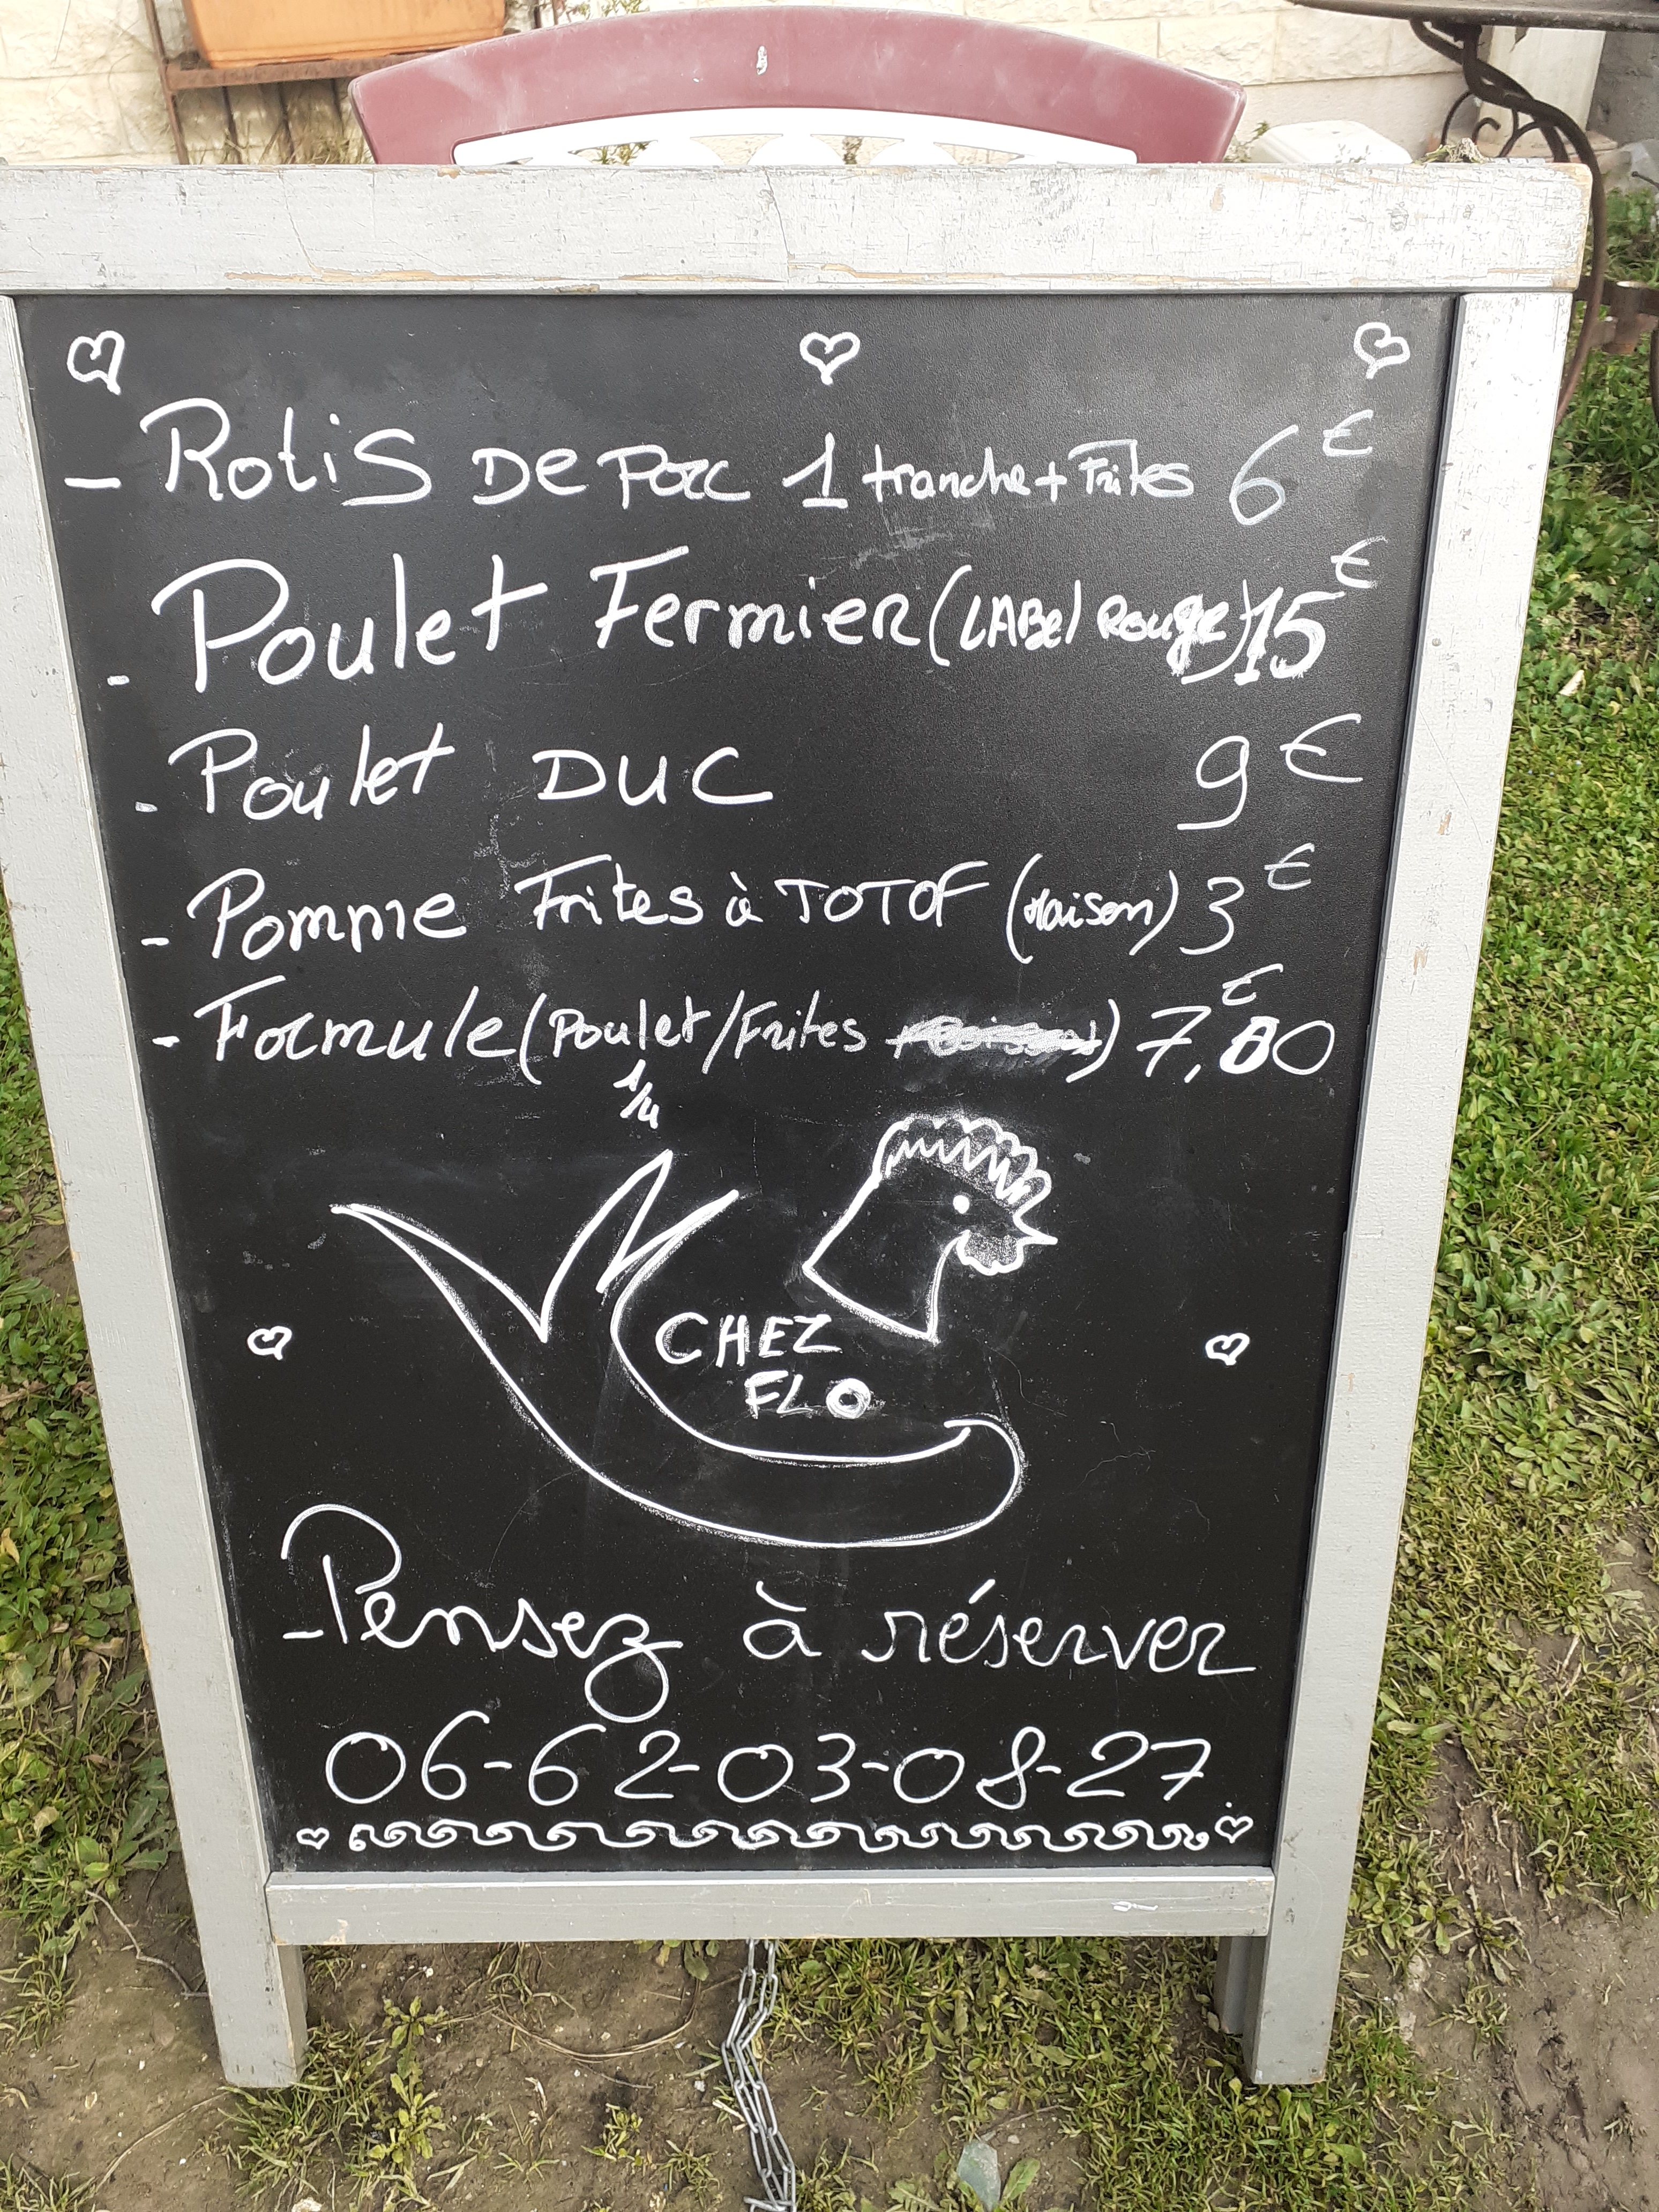 - Rotis De Porc 1 tranche + Frites 6€
- Poulet Fermier (LABel Rouge) 15€
- Poulet DUC 9€
- Pomme Frites à TOTOF (Maison) 3€
- Formule (Poulet/Frites) 7,00€
1/4
CHEZ
FLO
- Pensez à réserver
06-62-03-08-27.